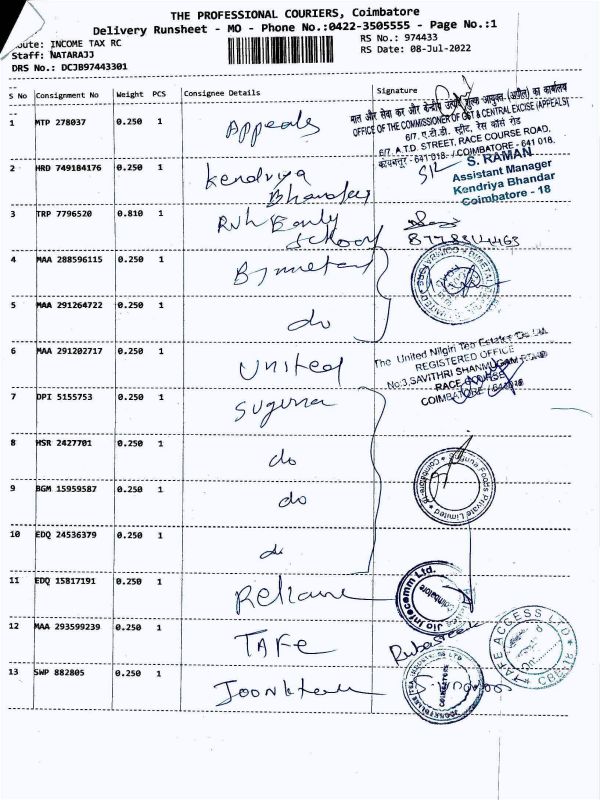 THE PROFESSIONAL COURIERS, Coimbatore
Delivery Runsheet - MO - Phone No.:0422-3505555 - Page No.:1
oute: INCOME TAX RC
Staff: NATARAJJ
DRS No.: DCJB97443301
RS No.: 974433
RS Date: 08-Jul-2022
S No Consignment No Weight PCS Consignee Details Signature
1 MTP 278037 0.250 1 Appeals
माल और सेवा कर और केन्द्रीय उत्पाद शुल्क आयुक्त (अपील) का कार्यालय
OFFICE OF THE COMMISSIONER OF GST & CENTRAL EXCISE (APPEALS)
6/7, ए.टी.डी. स्ट्रीट, रेस कोर्स रोड
6/7, A.T.D. STREET, RACE COURSE ROAD,
कोयम्बत्तूर - 641 018. / COIMBATORE - 641 018.
2 HRD 749184176 0.250 1 Kendriya
Bhandar
S. RAMAN
Assistant Manager
Kendriya Bhandar
Coimbatore - 18
3 TRP 7796520 0.810 1
School
4 MAA 288596115 0.250 1 Bimetal
5 MAA 291264722 0.250 1 do
6 MAA 291202717 0.250 1 United
The United Nilgiri Tea Estates Co. Ltd
REGISTERED OFFICE
No:3, SAVITHRI SHANMUGAM ROAD
RACE COURSE
COIMBATORE - 641018
7 DPI 5155753 0.250 1 Suguna
8 HSR 2427701 0.250 1 do
9 BGM 15959587 0.250 1 do
Suguna Foods Private Limited * Coimbatore
10 EDQ 24536379 0.250 1 do
11 EDQ 15817191 0.250 1 Reliance
Jio Infocomm Ltd.
Coimbatore
12 MAA 293599239 0.250 1 TAFE
TAFE ACCESS LTD
13 SWP 882805 0.250 1